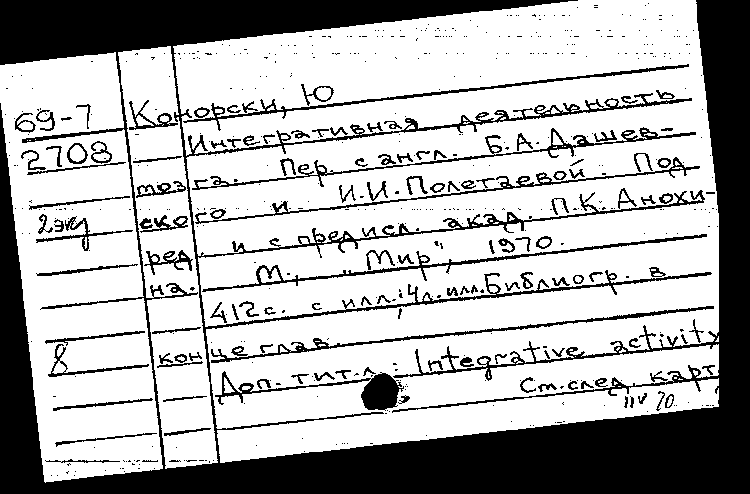 69-7 Конорски, Ю
2708 Интегративная деятельность
мозга. Пер. с англ. Б.А. Дашев-
2 экз ского и И.И. Полетаевой. Под
ред. и с предисл. акад. П.К. Анохи-
на. М., "Мир", 1970.
412 с. с илл.; 4 л. илл. Библиогр. в
8 конце глав.
Доп. тит. л.: Integrative activity
См. след. карт.
IIV 70